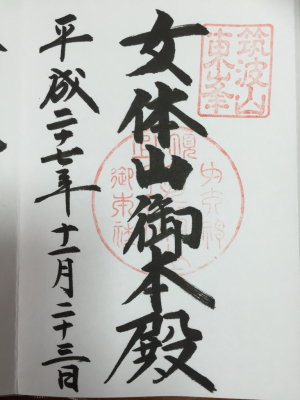 筑波山
東峯
女体山御本殿
平成二十七年十一月二十三日